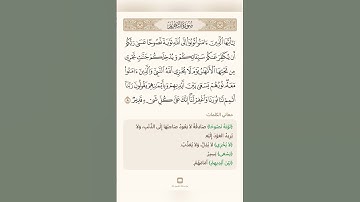 سُورَةُ التَّحْرِيمِ
يَٰٓأَيُّهَا ٱلَّذِينَ ءَامَنُوا۟ تُوبُوٓا۟ إِلَى ٱللَّهِ تَوْبَةً نَّصُوحًا عَسَىٰ رَبُّكُمْ
أَن يُكَفِّرَ عَنكُمْ سَيِّـَٔاتِكُمْ وَيُدْخِلَكُمْ جَنَّٰتٍ تَجْرِى
مِن تَحْتِهَا ٱلْأَنْهَٰرُ يَوْمَ لَا يُخْزِى ٱللَّهُ ٱلنَّبِىَّ وَٱلَّذِينَ ءَامَنُوا۟
مَعَهُۥ نُورُهُمْ يَسْعَىٰ بَيْنَ أَيْدِيهِمْ وَبِأَيْمَٰنِهِمْ يَقُولُونَ رَبَّنَآ
أَتْمِمْ لَنَا نُورَنَا وَٱغْفِرْ لَنَآ إِنَّكَ عَلَىٰ كُلِّ شَىْءٍ قَدِيرٌ ٨
معاني الكلمات:
(تَوْبَةً نَصُوحًا) صَادِقَةً لَا يَعُودُ صَاحِبُهَا إِلَى الذَّنْبِ، وَلَا
يُرِيدُ الْعَوْدَ إِلَيْهِ.
(لَا يُخْزِي) لَا يُذِلُّ، وَلَا يُعَذِّبُ.
(يَسْعَى) يَسِيرُ.
(بَيْنَ أَيْدِيهِمْ) أَمَامَهُمْ.